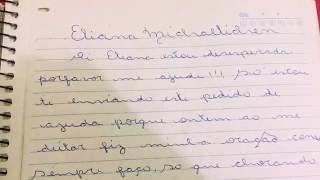 Eliana Michaellichen
Oi Eliana estou desesperada
porfavor me ajuda!!! Só estou
te enviando este pedido de
ajuda porque ontem ao me
deitar fiz minha oração como
sempre faço, só que chorando